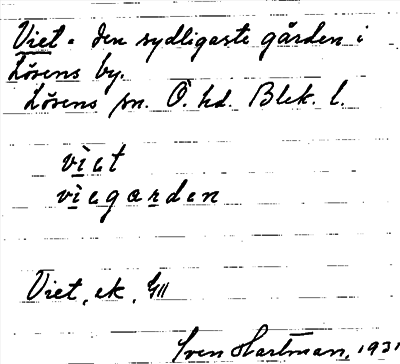 Viet. den sydligaste gården i
Lösens by.
Lösens sn. Ö. hd. Blek. l.
viet
viegarden
Viet, ek,
Sven Hartman, 1931